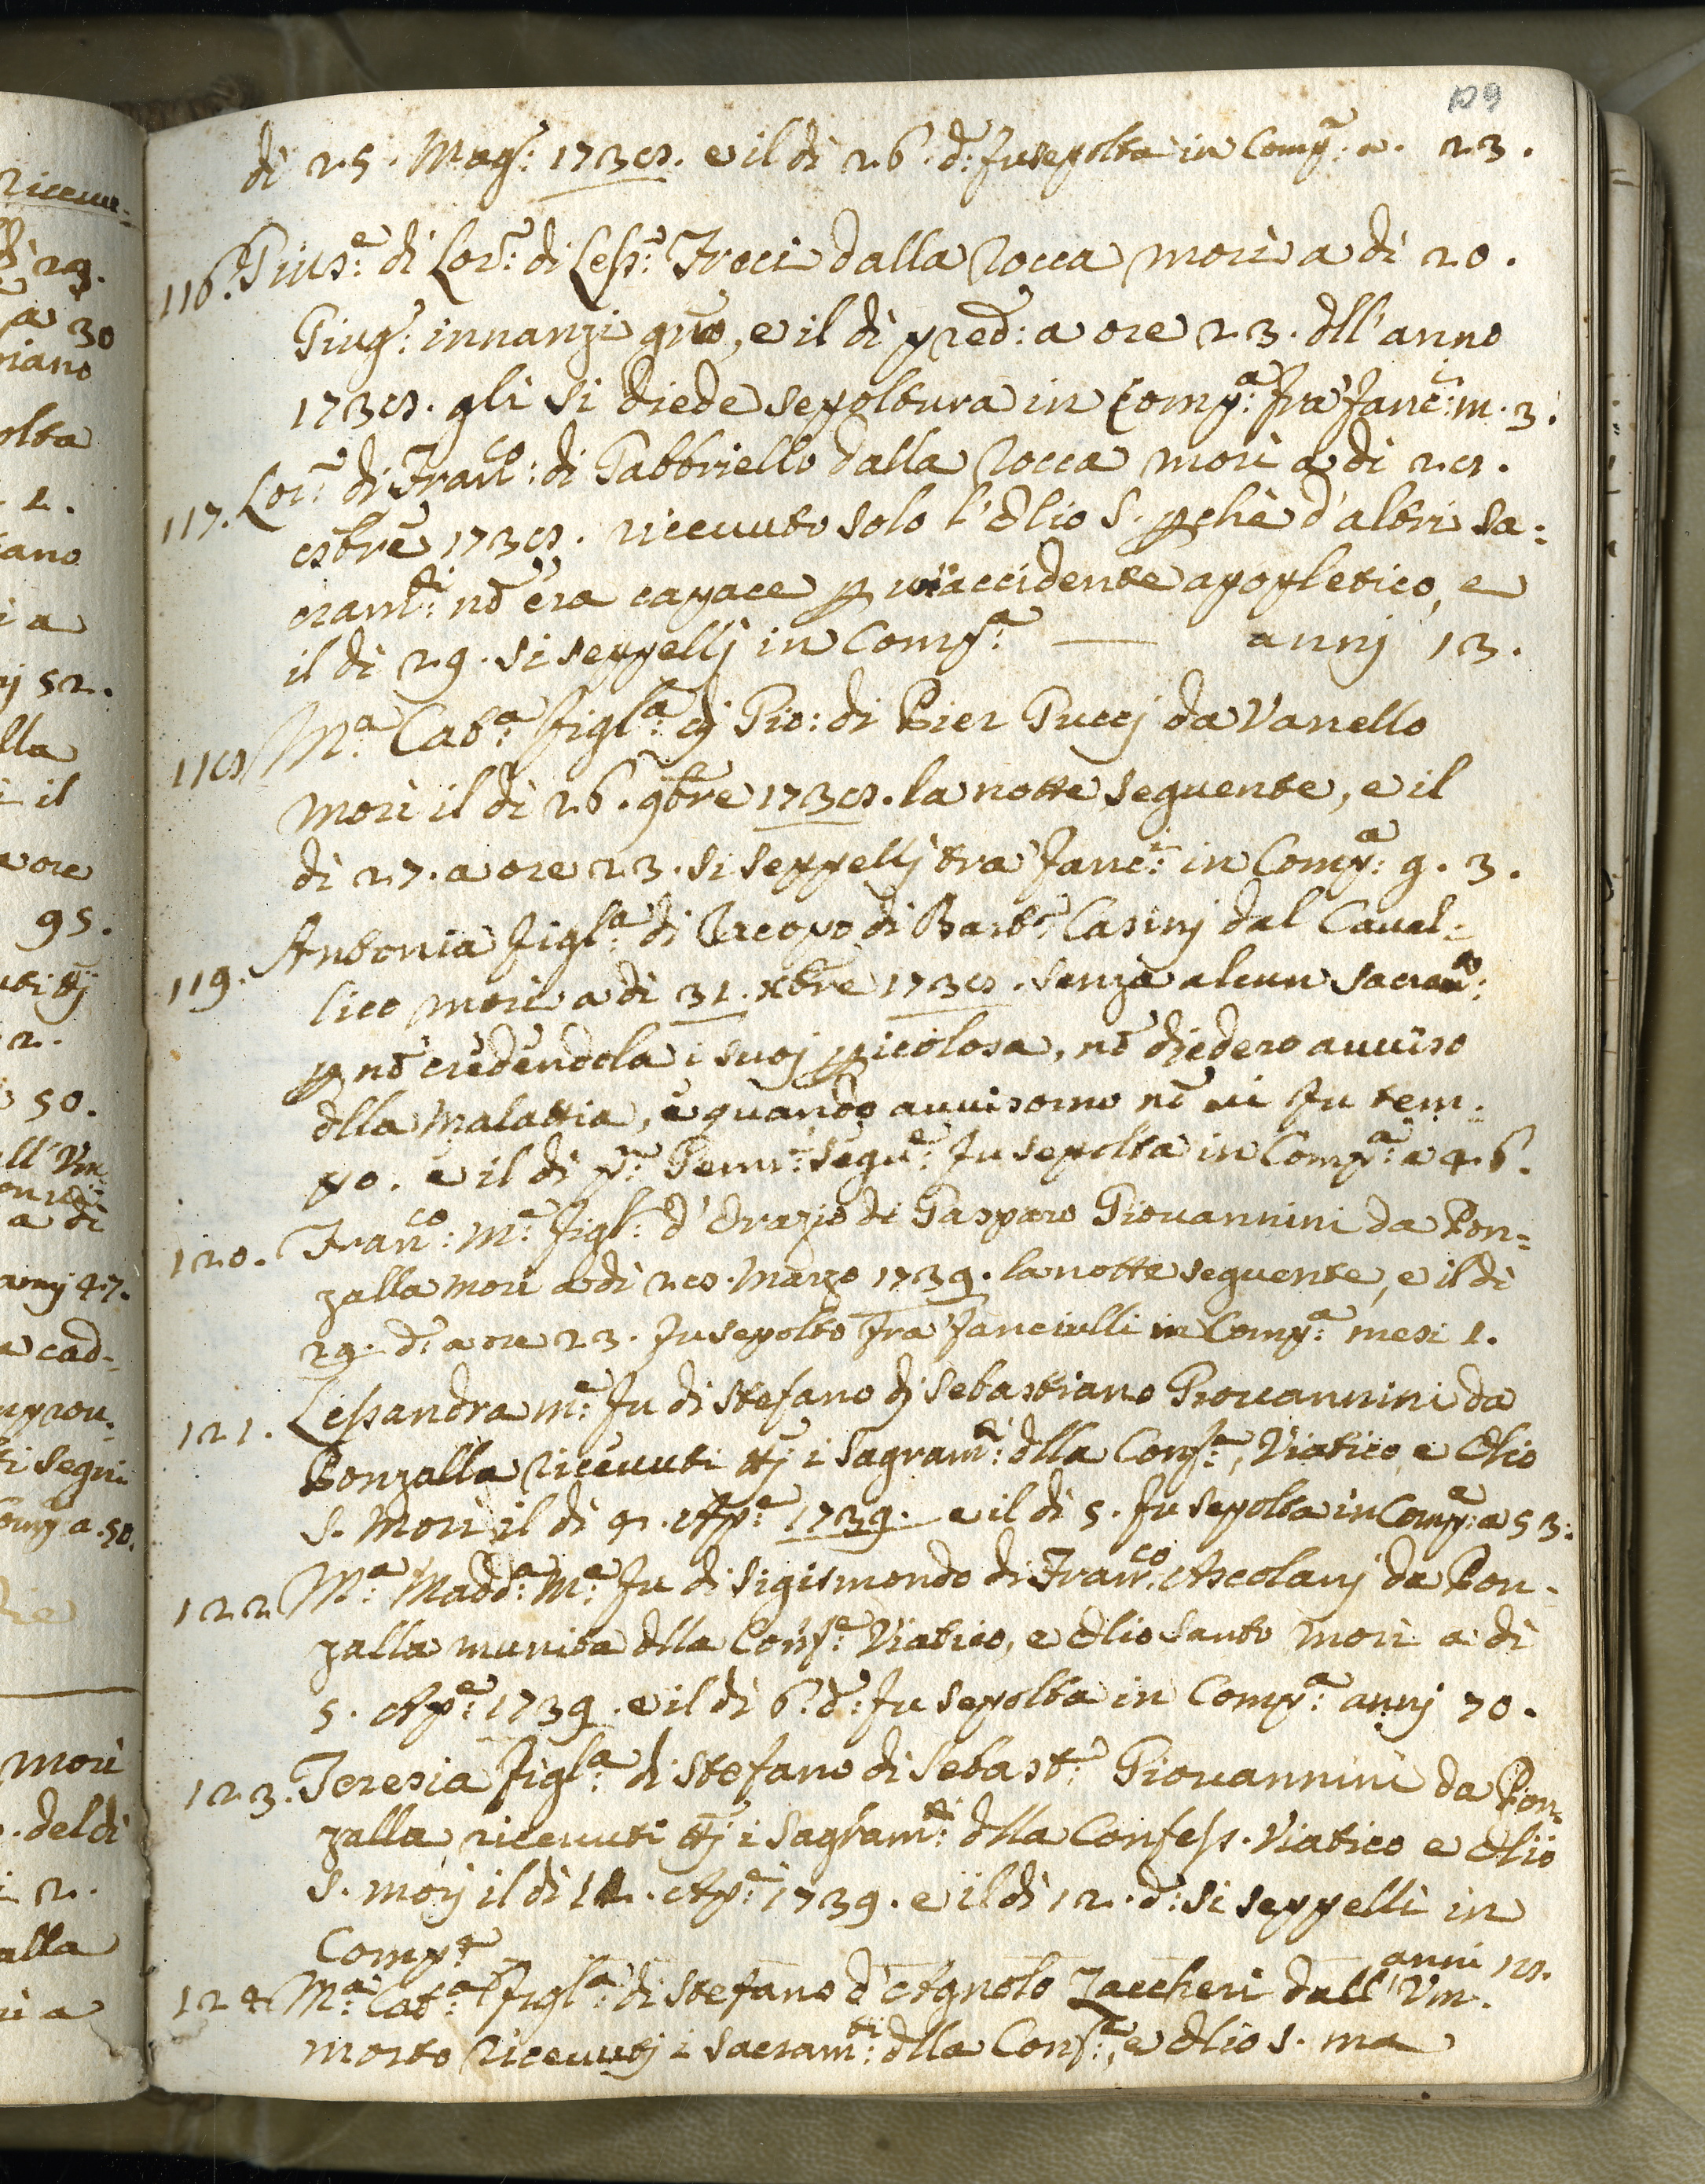 109
dì 25. Magg.º: 1738. e il dì 26. dº: fu sepolta in Compª: a. 23.
116. Giusᵉ: di Lorº: di Lessº: Froci dalla Rocca morì a dì 20.
Giugº: innanzi gno, e il dì pred: a ore 23. dll'anno
1738. gli si diede sepoltura in Compª: fra fancⁱ: m. 3.
117. Lorº: di Francº: di Gabbriello dalla Rocca morì a dì 28.
8bre 1738. ricevuto solo l'Olio S. pchè d'altri sa:
cramᵗⁱ: nō era capace p un accidente apopletico, e
il dì 29. si seppellj in Compª: — annj 13.
118 Mª Catª: figlª: dj Gio: di Pier Puccj da Vanello
morì il dì 26. 9bre 1738. la notte seguente, e il
dì 27. a ore 23. si seppellj tra fancⁱ: in Compª: g. 3.
119. Antonia figlª: di Jacopo di Bartº: Casinj dal Caval:
lico morì a dì 31. Xbre 1738. senza alcun sacramᵗᵒ:
p nō credendola i suoj picolosa, nō diedero avviso
dlla malattia, e quando avvisorno nō vi fu tem:
po. e il dì pº: Gennº: seguᵉ: fu sepolta in Compª: a 46.
120. Francº: Mª: figlº: d'Orazio di Gasparo Giovannini da Bon:
zalla morì a dì 28. Marzo 1739. la notte seguente, e il dì
29. dº: a ore 23. fu sepolto fra fanciulli in Compª: mesi 1.
121. Lessandra mᵉ: fu di Stefano dj Sebastiano Giovannini da
Bonzalla ricevuti ttj i Sagramᵗⁱ: dlla Confᵉ:, Viatico, e Olio
S. morì il dì 4. Apᵉ: 1739. e il dì 5. fu sepolta in Compª: a 53:
122 Mª: Maddª: Mᵉ: fu di Sigismondo di Francº: Ascolanj da Bon-
zalla munita dlla Confᵉ: Viatico, e Olio Santo morì a dì
5. Apᵉ: 1739. e il dì 6. dº: fu sepolta in Compª: annj 70.
123. Teresia figlª: di Stefano di Sebastº: Giovannini da Bon:
zalla, ricevuti ttj i Sagramᵗⁱ: dlla Confess. Viatico e Olio
S. morj il dì 11. Apᵉ: 1739. e il dì 12. dº: si seppellì in
Compª: anni 18.
124 Mª: Catª: figlª: di Stefano d'Agnolo Zaccheri dall'Vm.
morto ricevutj i sacramᵗⁱ: dlla Confᵉ:, e Olio s. ma